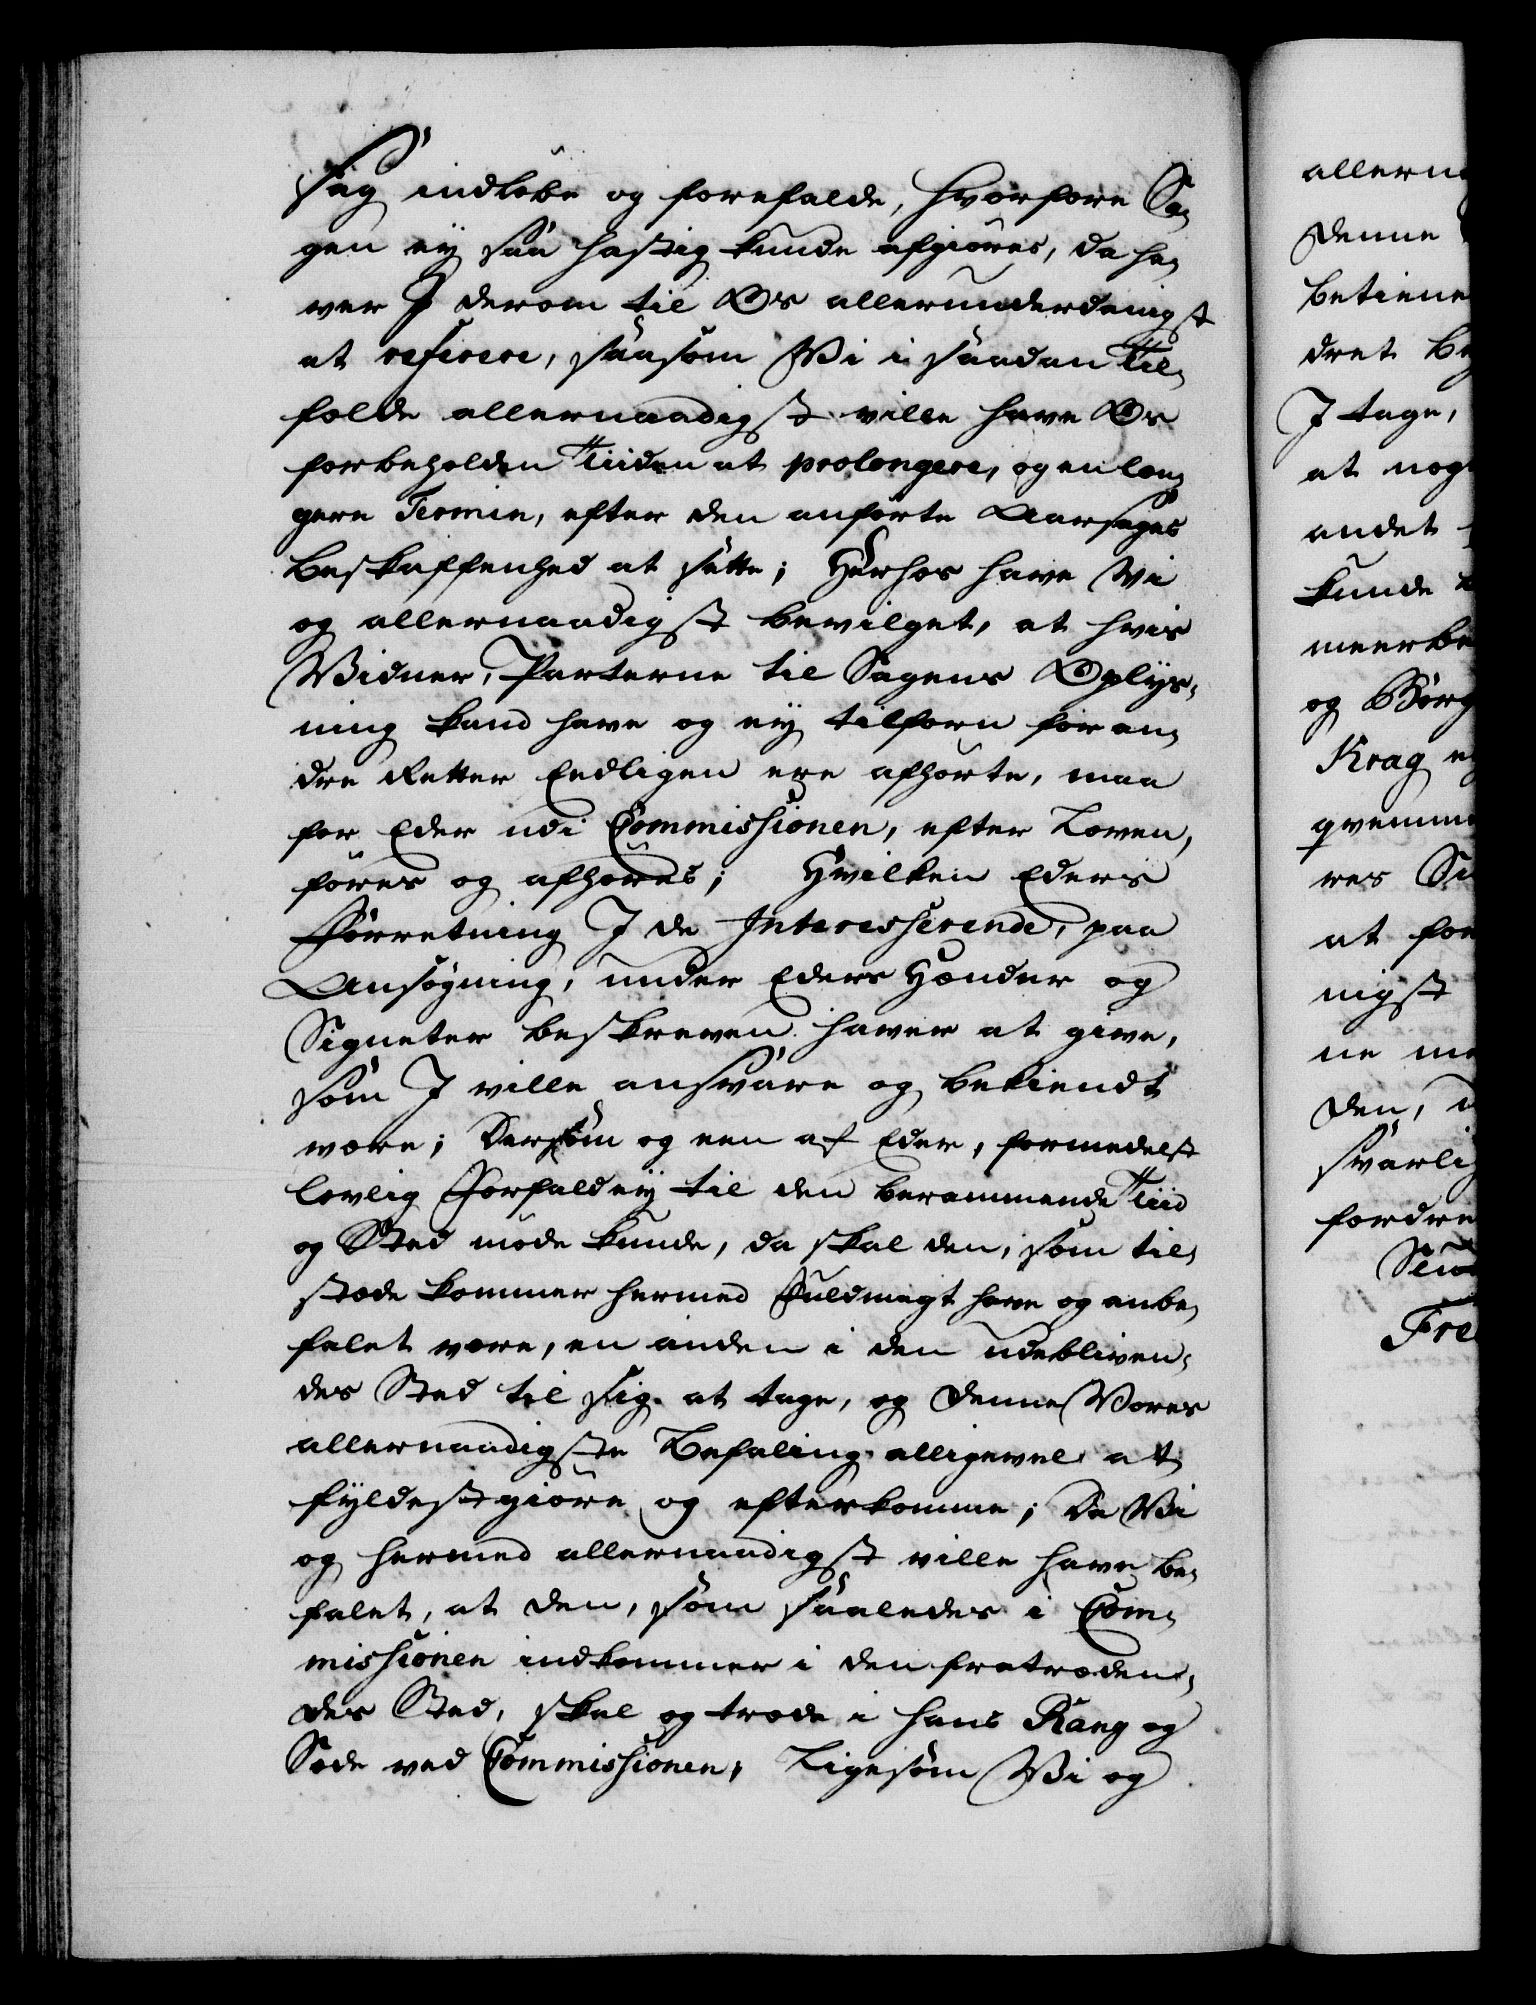 sag indløbe og forefalde, hvorfore Sa-
gen ey saa hastig kunde afgiøres, da ha-
ver I derom til Os allerunderdanigst
at referere, saasom Vi i saadan Til-
fælde allernaadigst ville have Os
forbeholden Tiiden at prolongere, og en læn-
gere Termin, efter den anførte Aarsages
Beskaffenhed at sætte; Herhos have Vi
og allernaadigst bevilget, at hvis
Vidner, Parterne til Sagens Oplys-
ning kand have og ey tilforn for an-
dre Retter Eedligen ere afhørte, maa
for Eder udi Commissionen, efter Loven,
føres og afhøres; Hvilken Eders
Forretning I de Interesserende, paa
Ansøgning, under Eders Hænder og
Signeter beskreven haver at give,
som I ville ansvare og bekiendt
være; Dersom og een af Eder, formedelst
lovlig Forfald ey til den berammende Tiid
og Sted møde kunde, da skal den, som til-
stæde kommer hermed Fuldmagt have og anbe-
falet være, en anden i den udebliven-
des Sted til sig at tage, og denne Vores
allernaadigste Befaling alligevel at
fyldestgiøre og efterkomme; Da Vi
og hermed allernaadigst ville have be-
falet, at den, som saaledes i Com-
missionen indkommer i den fratræden-
des Sted, skal og træde i hans Rang og
Sæde ved Commissionen, Ligesom Vi og
allern
denne
betiene
dret
I tage,
at nog
andet
kunde
meerbe
og Borg
Krag
qvemme
res
at for
nigst
ne
den,
svarli
fordre
Fre